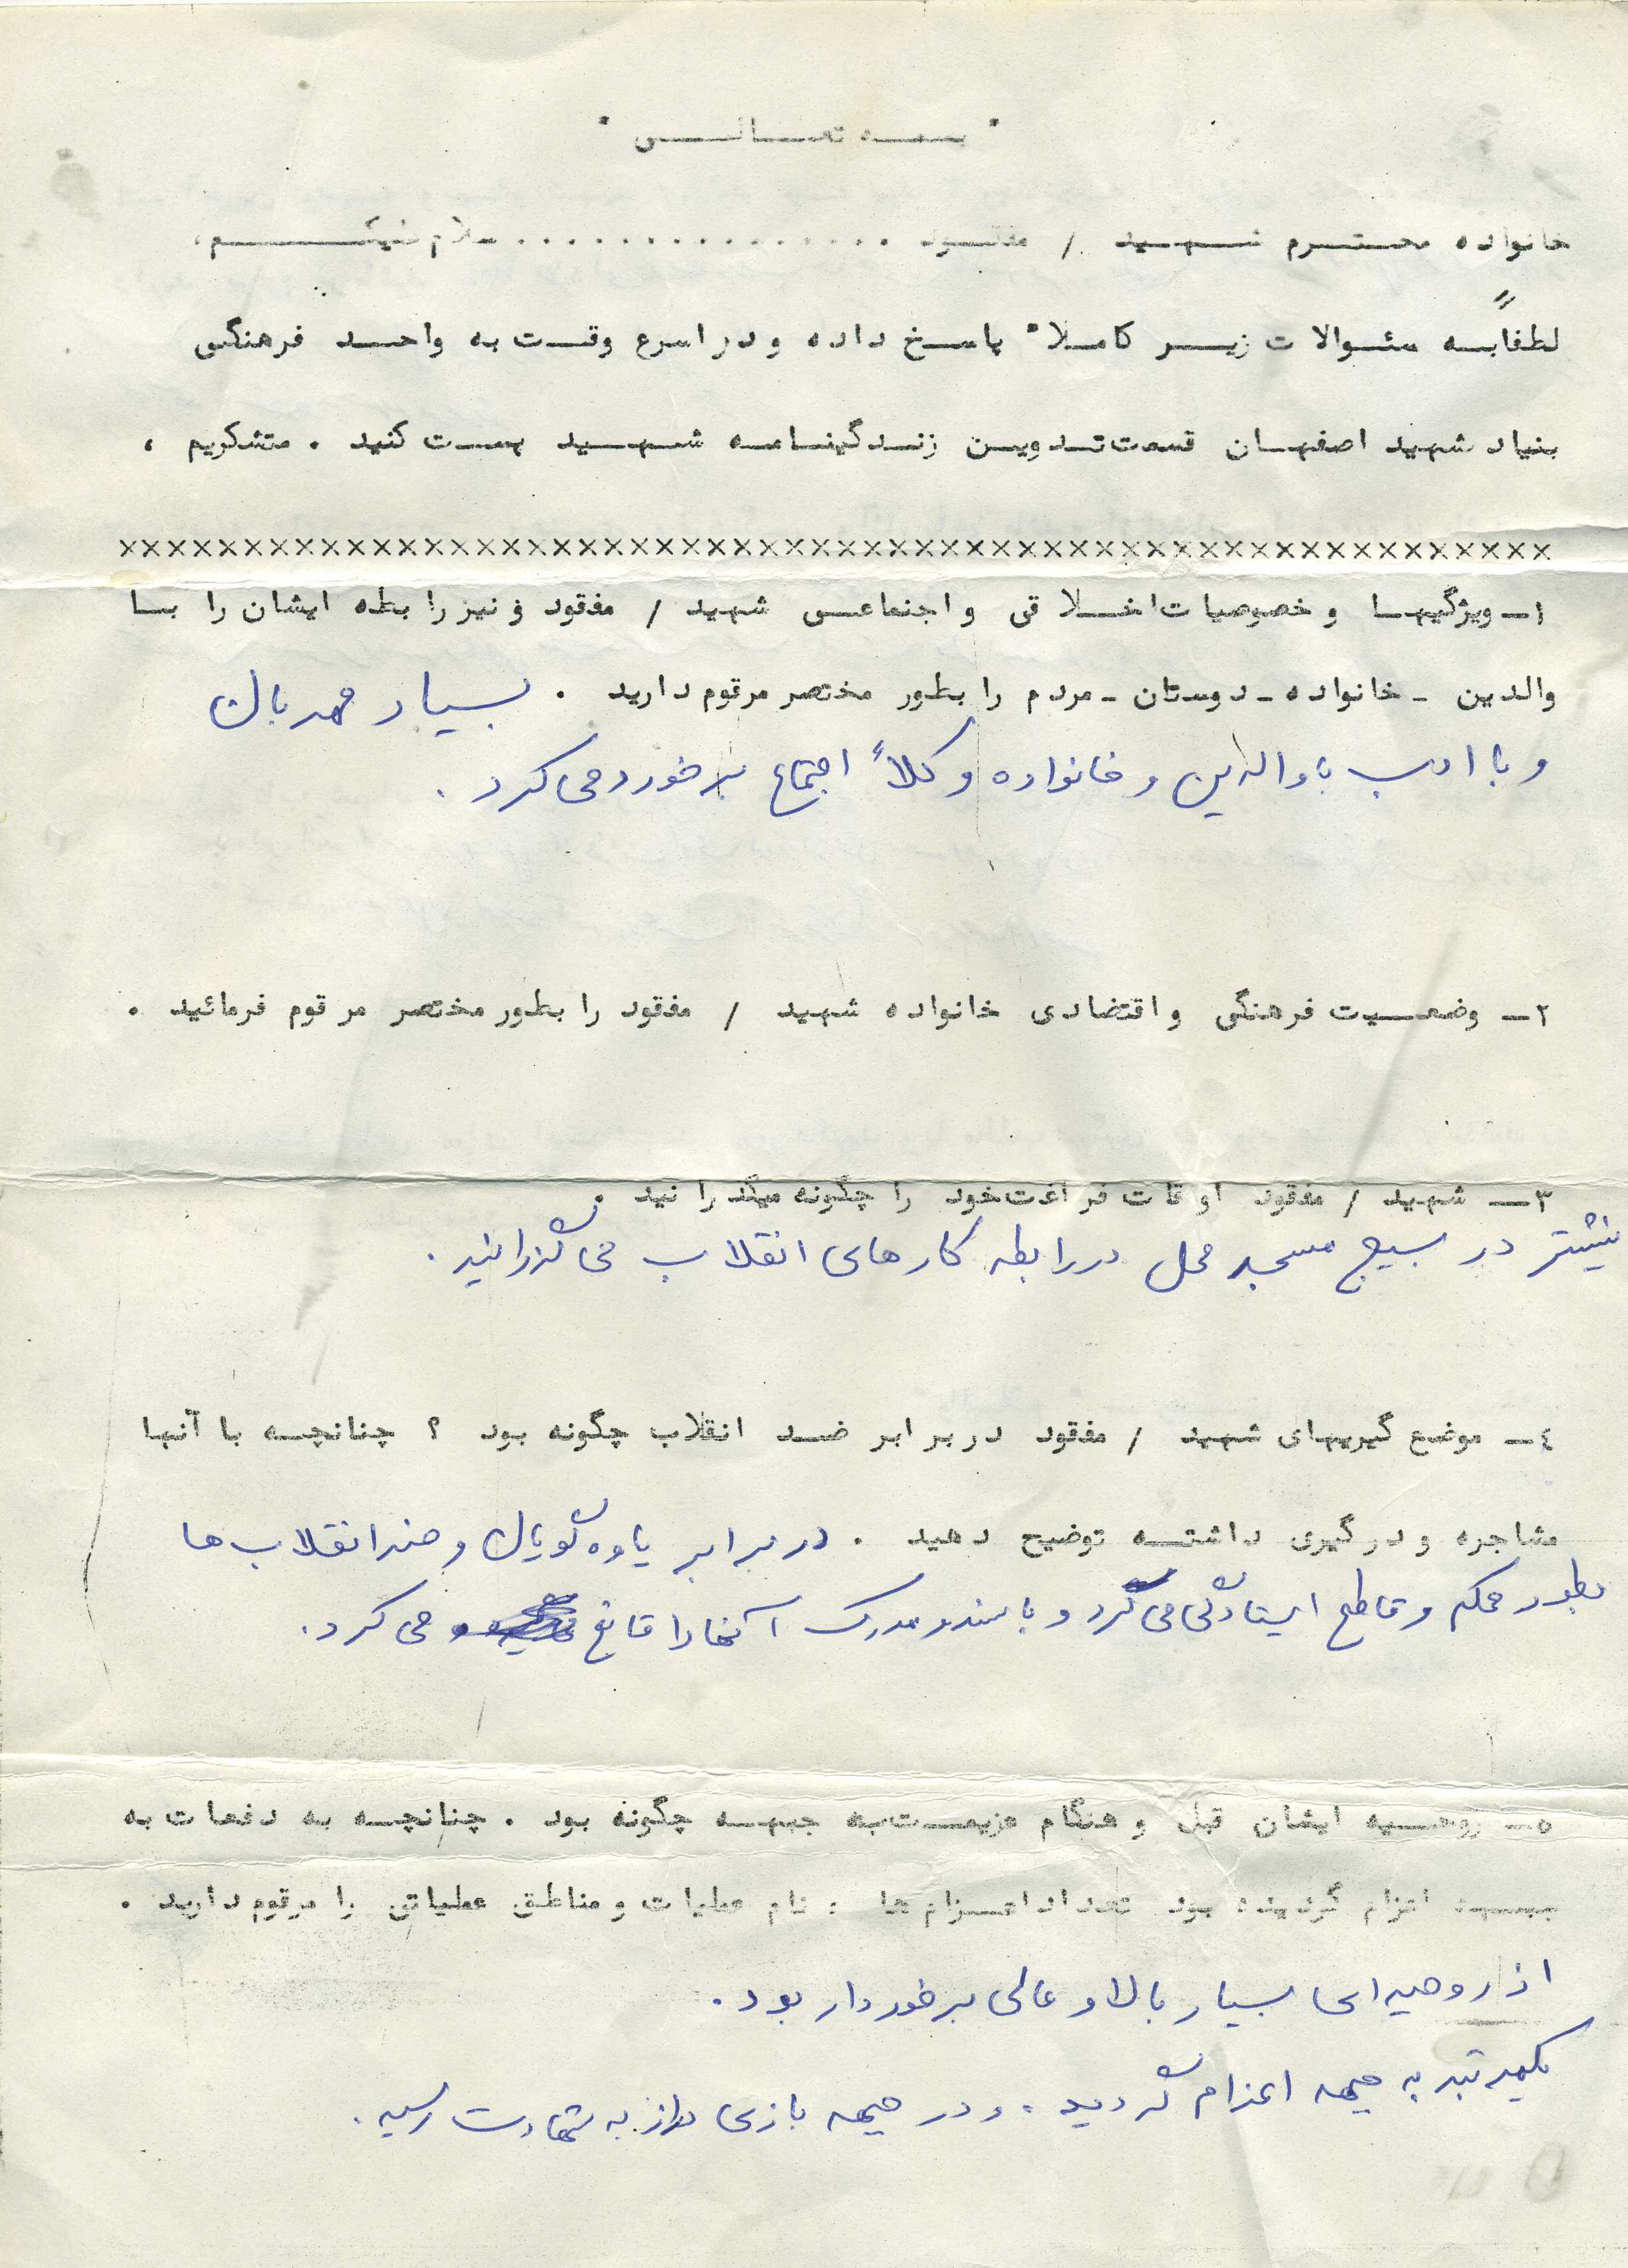 " بسمه تعالی "
خانواده محترم شهید / مفقود ............... سلام علیکم،
لطفاً به سئوالات زیر کاملا" پاسخ داده و در اسرع وقت به واحد فرهنگی
بنیاد شهید اصفهان قسمت تدوین زندگینامه شهید پست کنید . متشکریم ،
××××××××××××××××××××××××××××××××××××××××××××××××××××××××
۱ـ ویژگیها و خصوصیات اخلاقی و اجتماعی شهید / مفقود و نیز رابطه ایشان را با
والدین ـ خانواده ـ دوستان ـ مردم را بطور مختصر مرقوم دارید . بسیار مهربان
و با ادب با والدین و خانواده و کلاً اجتماع برخورد می کرد .
۲ـ وضعیت فرهنگی و اقتضادی خانواده شهید / مفقود را بطور مختصر مرقوم فرمائید .
۳ـ شهید / مفقود اوقات فراغت خود را چگونه میگذرانید .
بیشتر در بسیج مسجد محل در رابطه کارهای انقلاب می گذرانید .
٤ـ موضع گیریهای شهید / مفقود در برابر ضد انقلاب چگونه بود ؟ چنانچه با آنها
مشاجره و درگیری داشته توضیح دهید . در برابر یاوه گویان و ضد انقلاب ها
بطور محکم و قاطع ایستادگی می کرد و با سند و مدرک آنها را قانع می کرد .
٥ـ روحیه ایشان قبل و هنگام عزیمت به جبهه چگونه بود . چنانچه به دفعات به
جبهه اعزام گردیده بود تعداد اعزام ها ، نام عملیات و مناطق عملیاتی را مرقوم دارید .
از روحیه ای بسیار بالا و عالی برخوردار بود .
یکمرتبه به جبهه اعزام گردید . و در جبهه بازی دراز به شهادت رسید .